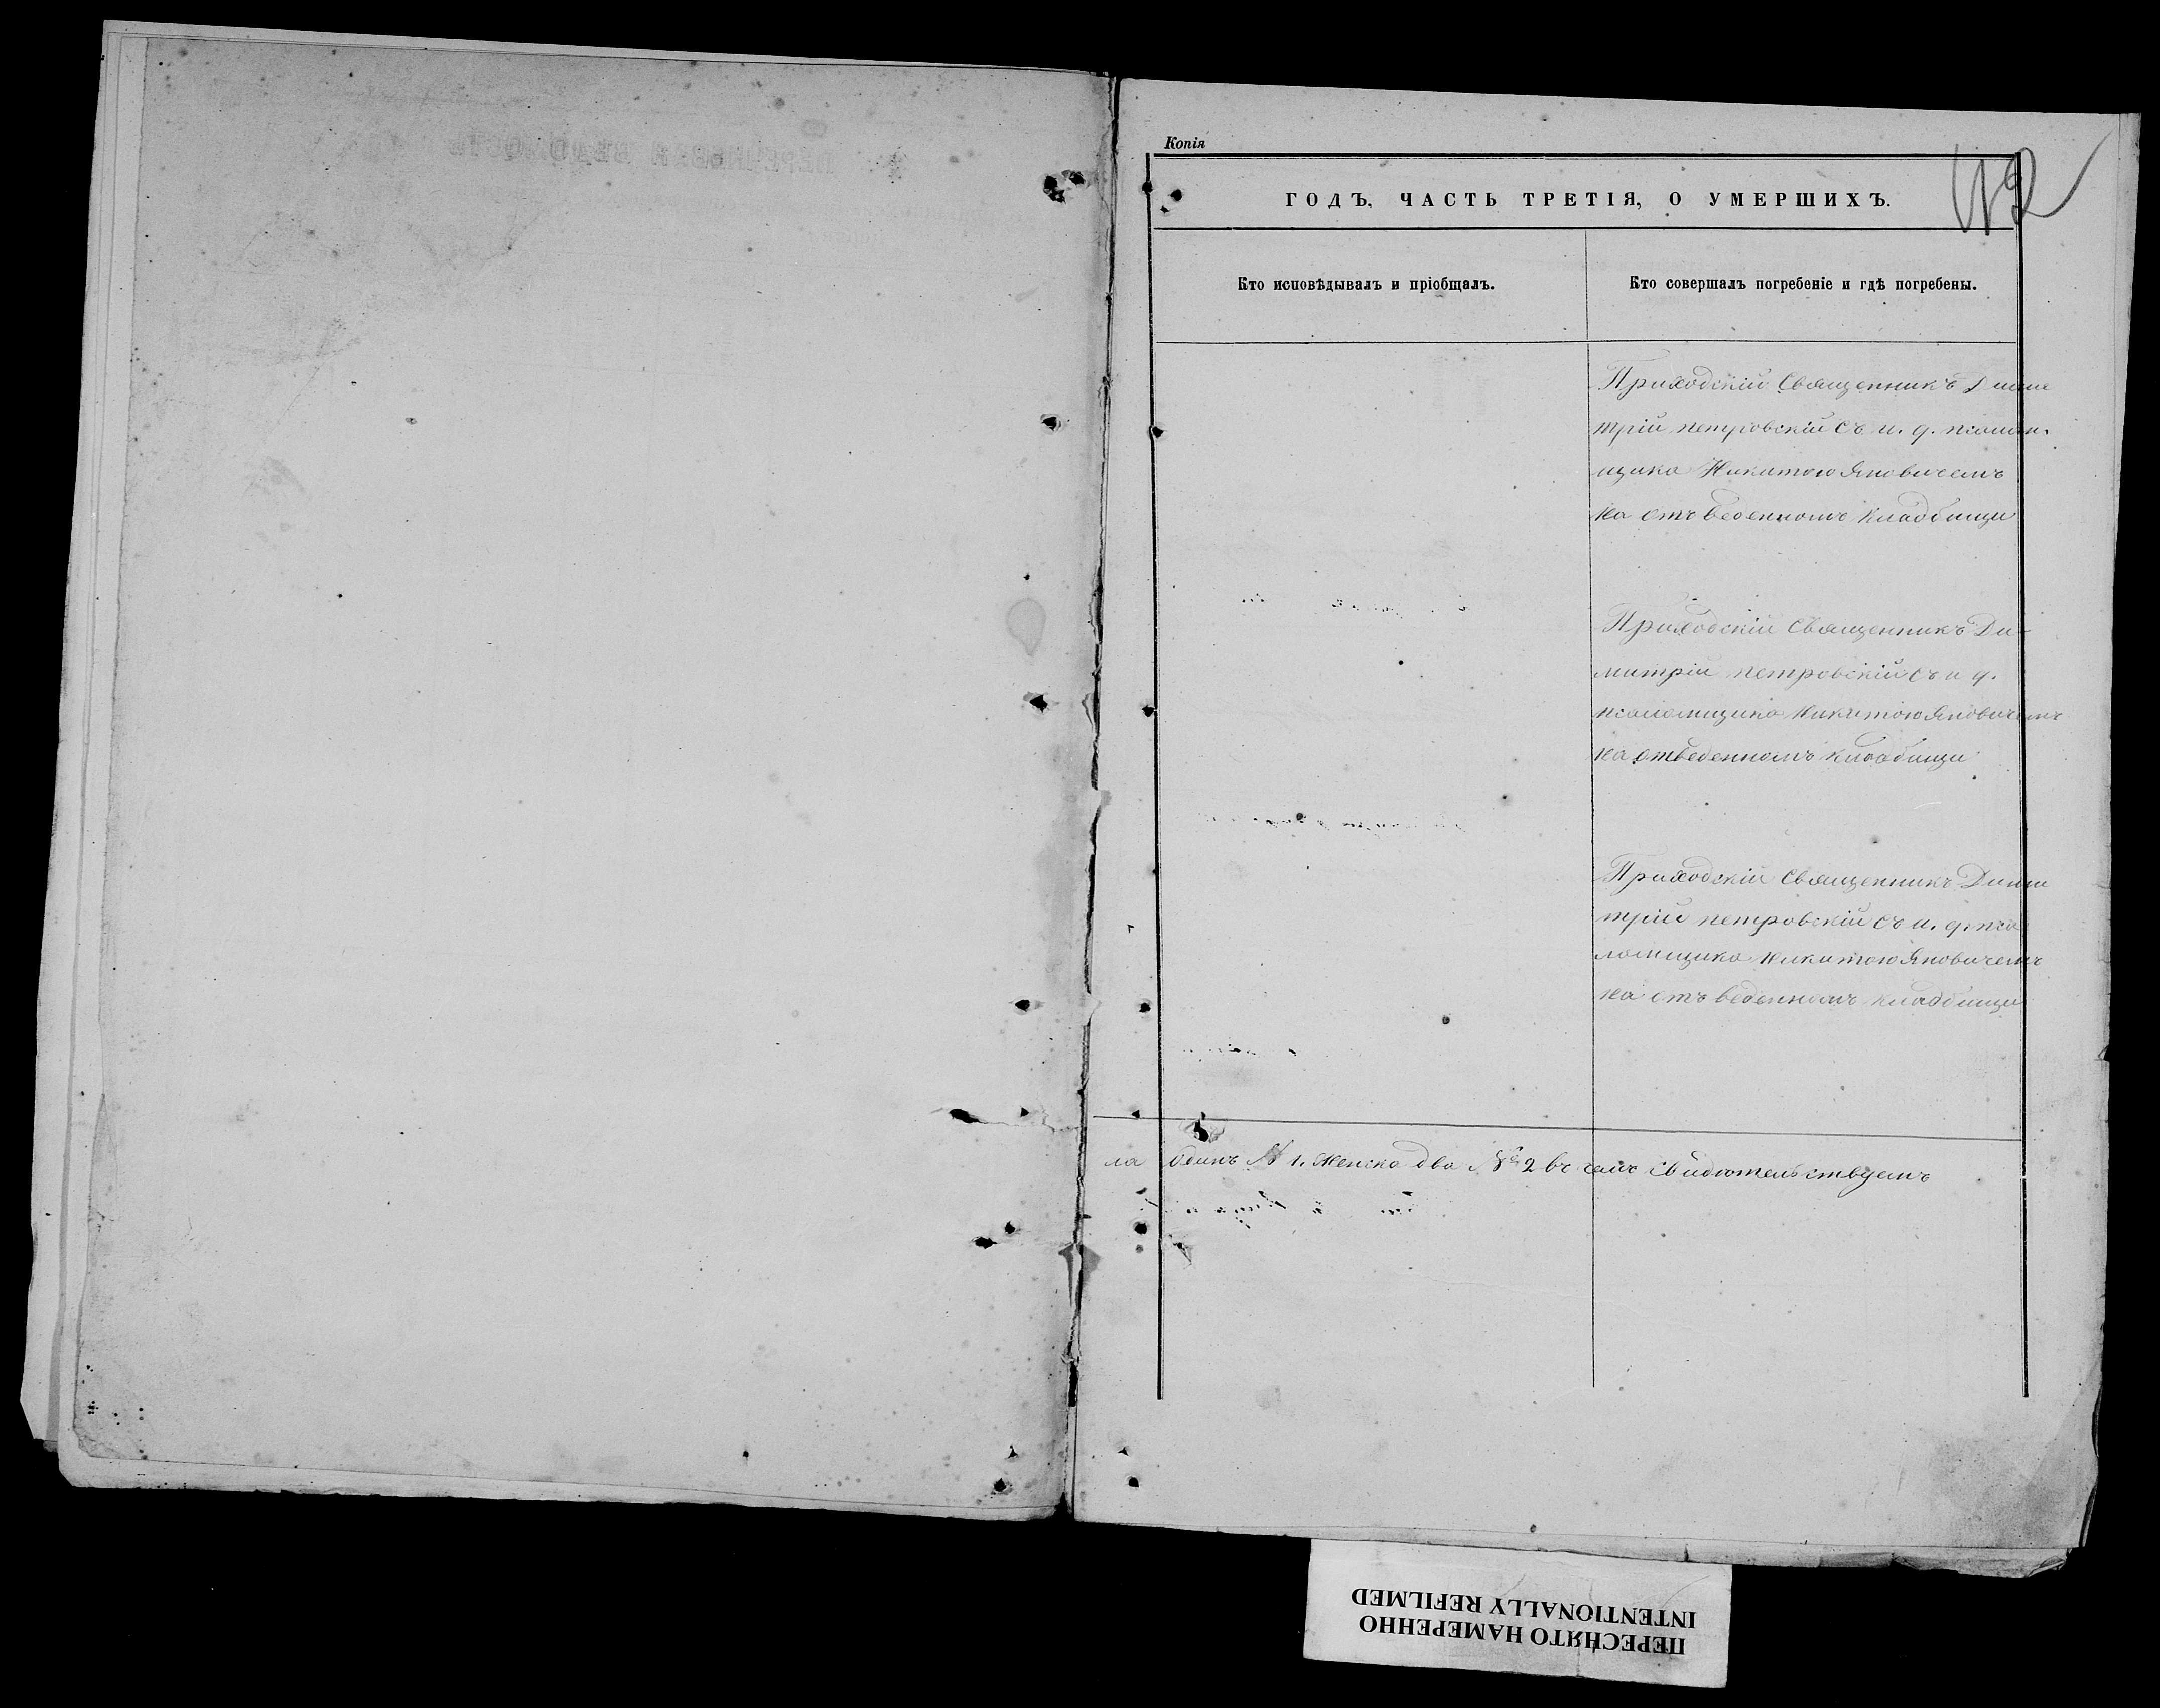 Копія
ГОДЪ, ЧАСТЬ ТРЕТІЯ, О УМЕРШИХЪ.
42
Кто исповѣдывалъ и пріобщалъ.
Кто совершалъ погребеніе и гдѣ погребены.
Приходскій Священникъ Дими
трій петровскій съ и. д. псалом.
щика Никитою Яновичемъ
на отъведенномъ кладбищи
Приходскій Священникъ Ди-
митрій петровскій съ и д.
псаломщика Никитою Яновичемъ
на отведенномъ кладбищи
Приходскій Священникъ Дими
трій петровскій съ и. д. пса
ломщика Никитою Яновичемъ
на отъведенномъ кладбищи
ла одинъ № 1. женска два № 2 въ чемъ свидютельствуемъ
ПЕРЕСНЯТО НАМЕРЕННО
INTENTIONALLY REFILMED